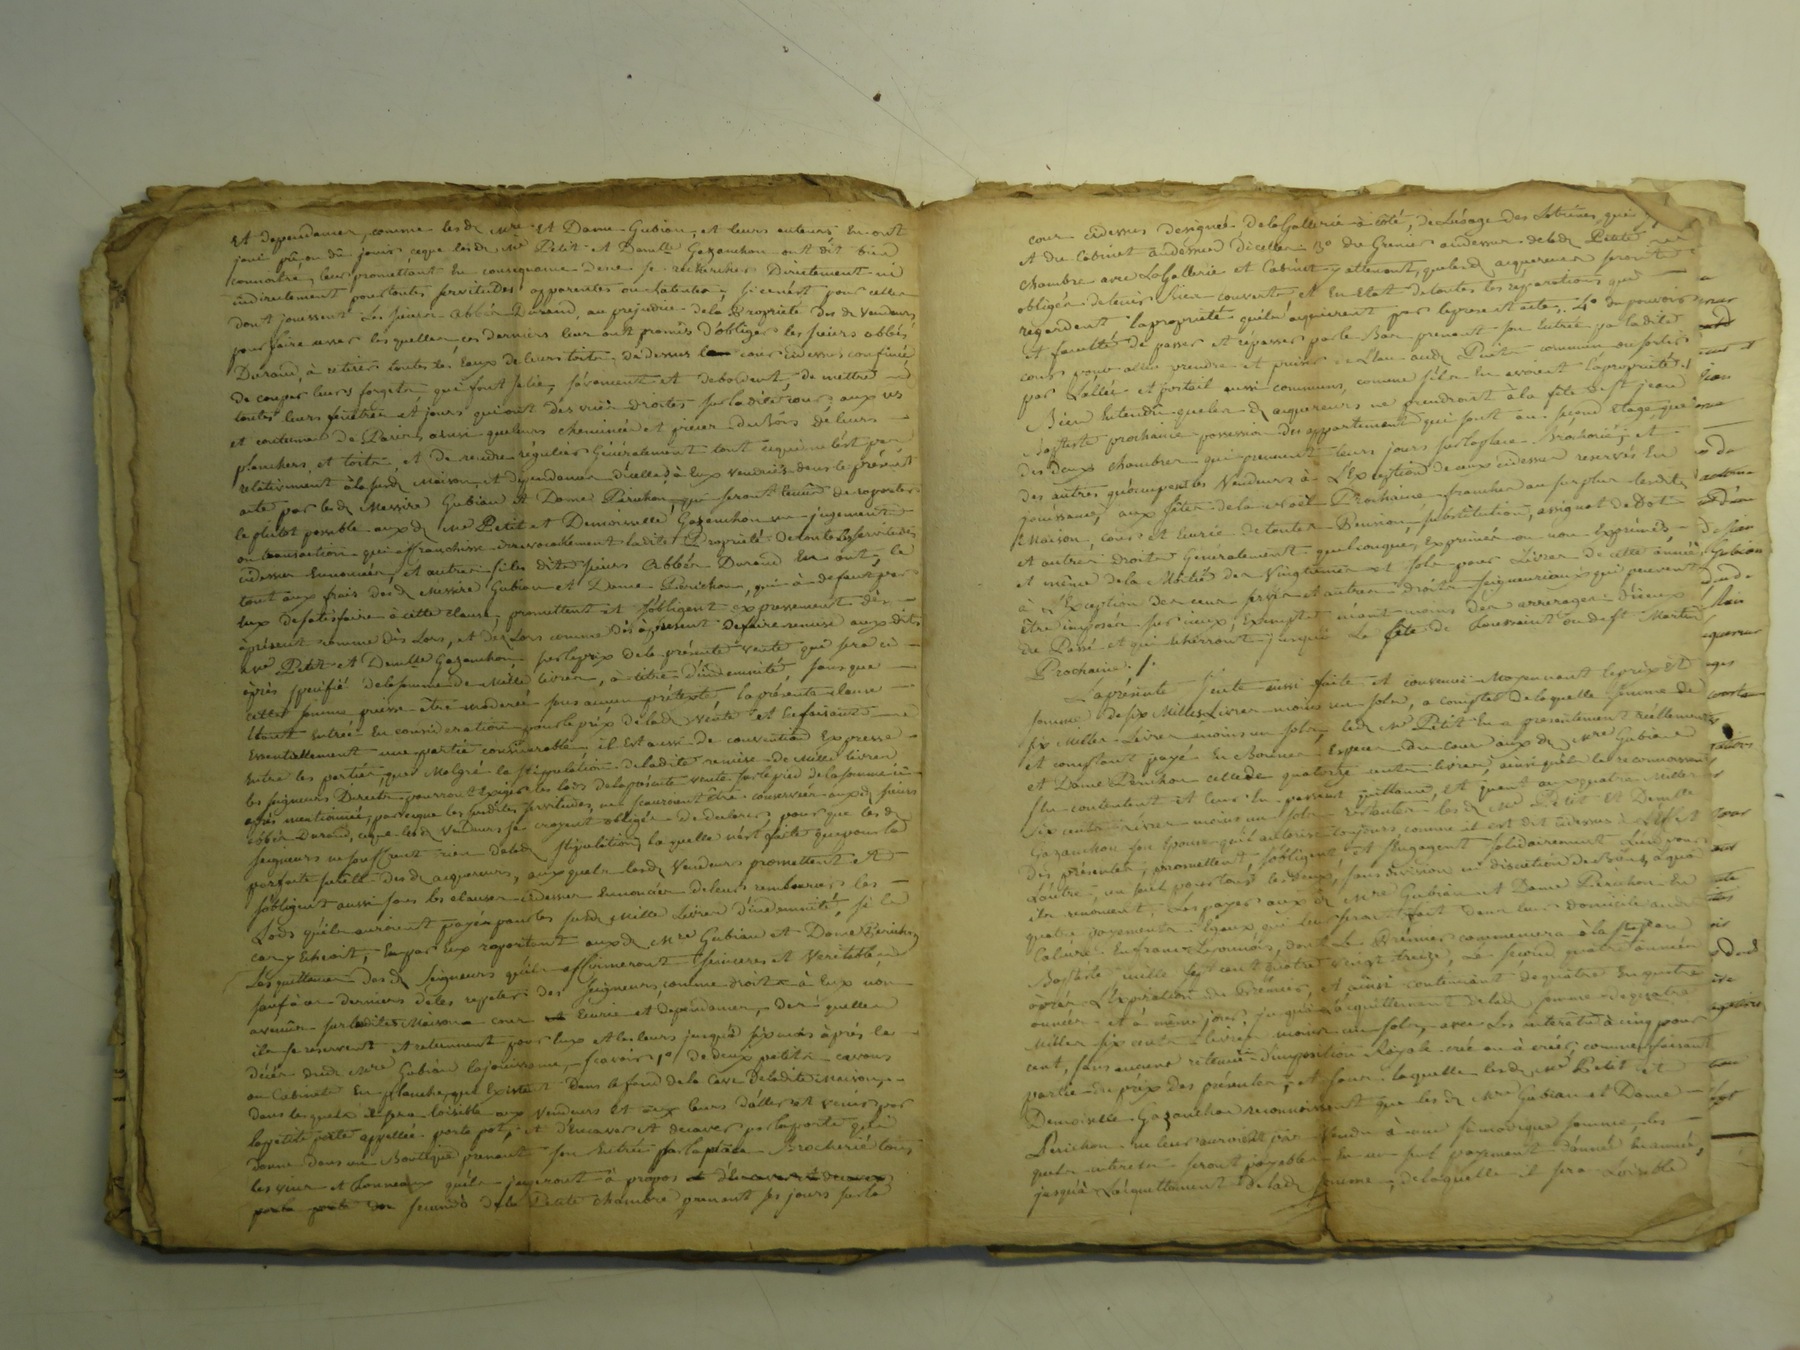 Et dependances, comme lesd. Mre. Et Dame Gubian, et leurs auteurs En ont
joui pû, ou dû jouir, ceque lesd. Mr. Petit et Demlle. Gazanchon ont dit bien
connoitre, leur promettant En consequence Dene se rechercher Directement ni
indirectement pour toutes servitudes apparentes ou latentes, si cen'est pour celles
dont jouissent Les sieurs Abbés Durand, au prejudice dela Propriété des d. Vendeurs,
pour faire cesser les quelles, ces derniers leur ont promis d'obliger les sieurs abbés
Durand, à retirer toutes les Eaux de leurs toits, dedessus la cour cidessus confinée
De couper leurs forgets, qui font Salie, favement et debordent; de mettre
toutes leurs fenêtres et jours qui ont des vües droites sur ladite cour; aux us
et coutumes de Paris, ainsi queleurs cheminées et pieces du bois de leurs
planchers, et toits, et de rendre régulier Généralement tout cequi ne l'est pas
relativement à lasusd. Maison, et dependances d'icelle, à Eux vendües dans le présent
acte par lesd. Messire Gubian Et Dame Périchon, qui seront tenus de raporter
le plutot possible auxd. Mr. Petit et Demoiselle Gazanchon un jugement
ou transaction qui affranchisse irrevocablement ladite Propriété De toutes les servitudes
cidessus Enoncées, et autres si les dits sieurs Abbés Durand En ont, le
tout aux frais desd. Messire Gubian et Dame Périchon, qui à defaut par
Eux desatisfaire à cette clause, promettent et s'obligent expressement dès
àprésent comme dès Lors, et dès Lors comme dès àpresent De faire remise aux dits
Mr. Petit et Demlle. Gazanchon sur le prix dela présente vente qui sera ci
après specifié dela somme de Mille livres, à titre d'indemnité, sans que
cette somme puisse être moderée sous aucun prétexte, la présente clause
Etant Entrée En consideration pour le prix de lad. vente Et En faisant
Essentiellement une partie considerable; il Est aussi de convention Expresse
Entre les parties que Malgré la stipulation deladite remise de Mille livres
les seigneurs Directs pourront Exiger les lods dela présente vente sur le pied de la somme ci
après mentionnée, parceque les susdites servitudes ne sçauroient être conservées auxd. sieurs
abbés Durand, ceque lesd. Vendeurs se croyent obligés de declarer, pour que lesd.
seigneurs ne souffrent rien delad. stipulation, laquelle n'est faite que pour la
parfaite sureté des d. acquereurs, auxquels lesd. Vendeurs promettent et
s'obligent aussi sous les clauses cidessus Enoncées de leurs rembourser les
Lods qu'ils auroient payés pour les susd. Mille livres d'indemnité, si le
cas y Echeoit, En par Eux raportant auxd. Mre. Gubian et Dame Perichon
Les quittances desd. Seigneurs qu'ils affirmeront sinceres et Veritables,
sauf à ces derniers de les repeter des Seigneurs, comme droits à Eux non
avenüs sur ladite Maison cour Ecurie et dependances, des quelles
ils se reservent et retiennent pour Eux et les leurs jusqu'à six mois après le
décès dud. Mre. Gubian la jouissance, sçavoir, 1º de deux petits caveaux
ou Cabinets En planches, qui Existent Dans le fond de la Cave De ladite Maison,
dans lesquels il sera loisible aux Vendeurs Et aux leurs d'aller et venir par
lapetite porte appellée porte pot, et D'encaver et decaver par la porte qui
donne dans une Boutique prenant son Entrée sur la place Brocherie tous
les vins et tonneaux qu'ils jugeront à propos et d'encaver et decaver
secundò dela Petite chambre prenant ses jours sur la
cour cidessus designée De la Gallerie à côté, de L'usage des Latrines, qui
et du Cabinet audessus D'icelles 3º du Grenier audessus deladite Petite
chambre avec La Gallerie et Cabinet y attenant, quelesd. acquereurs seront
obligés detenir bien couverts et En Etat de toutes les reparations qui
regardent lapropriété qu'ils acquierent par leprésent acte. 4º du pouvoir
Et faculté de passer et répasser par le Bas prenant son Entrée par ladite
cour pour aller prendre et puiser L'eau audit Puits commun ou sortir
par L'allée et portail aussi communs, comme s'ils En avoient la propriété
Bien Entendu quelesd. acquereurs ne prendront à la fête de st. jean
Baptiste prochaine possession des appartements qui sont au second Etage, que
des deux chambres qui prennent leurs jours sur laplace Brocherie, et
des autres qu'occupent les Vendeurs à L'Exception de ceux cidessus reservés En
jouissance, aux fêtes de la noël Prochaine, franche au surplus lesdites
Maison, cour et Ecurie detoutes Pensions, substitution, assignat de Dot
et autres droits Généralement quelconques, Exprimés ou non Exprimés,
et même de la Moitié des Vingtiemes et sols pour Livre de cette année,
à L'Exception des cens servis et autres droits seigneuriaux qui peuvent
Être imposés sur iceux, Exempte néant moins des arrerages D'iceux
du Passé et qui Echerront jusques La fête de Toussaint ou de st. Martin
Prochaine ./.
La présente Vente ainsi faite et convenüe Moyennant leprix et
somme de six Milles Livres moins un sols, à compte de laquelle somme de
six Milles Livres moins un sols, led. Mr. Petit En a presentement réellement
et comptant payé En Bonnes Especes du cour aux d. Mre. Gubian
et Dame Perichon celle de quatorze cents livres, ainsi qu'ils le reconnoissent
s'En contentent et leur En passent quittance, Et quant aux quatre Milles
six cents Livres moins un sols restantes lesd. Mr. Petit et Demlle.
Gazanchon son Epouse qu'il autorise toujours comme il est dit cidessus à L'effet
Des présentes, promettent, s'obligent, et s'engagent solidairement L'un pour
L'autre, un seul pour tous les deux, sans division ni discution de Biens, à quoi
ils renoncent, Les payer aux d. Mre. Gubian et Dame Périchon En
quatre payements Egaux qui leur seront fait dans leur domicile aud.
Caluire Enfranc Lyonnois, dont Le Prémier commencera à la st. jean
Baptiste mille sept cent quatre vingt treize, Le second quatre années
après L'Expiration du Prémier, et ainsi continuant dequatre En quatre
années et à même jour, jusqu'à L'acquittement de lad. somme de quatre
Milles six cents livres moins un sols, avec les intérêts à cinq pour
cent, sans aucune retenüe d'imposition Royale créé ou à créér, comme faisant
partie du prix des présentes, et sans laquelle lesd. Mr. Petit et
Demoiselle Gazanchon reconnoissent que les d. Mre. Gubian et Dame
Périchon ne leur auroient pas vendu à une si modique somme, les
quels interets seront payables En un seul payement D'année En année,
jusqu'à L'acquittement De lad. somme, de laquelle il sera Loisible